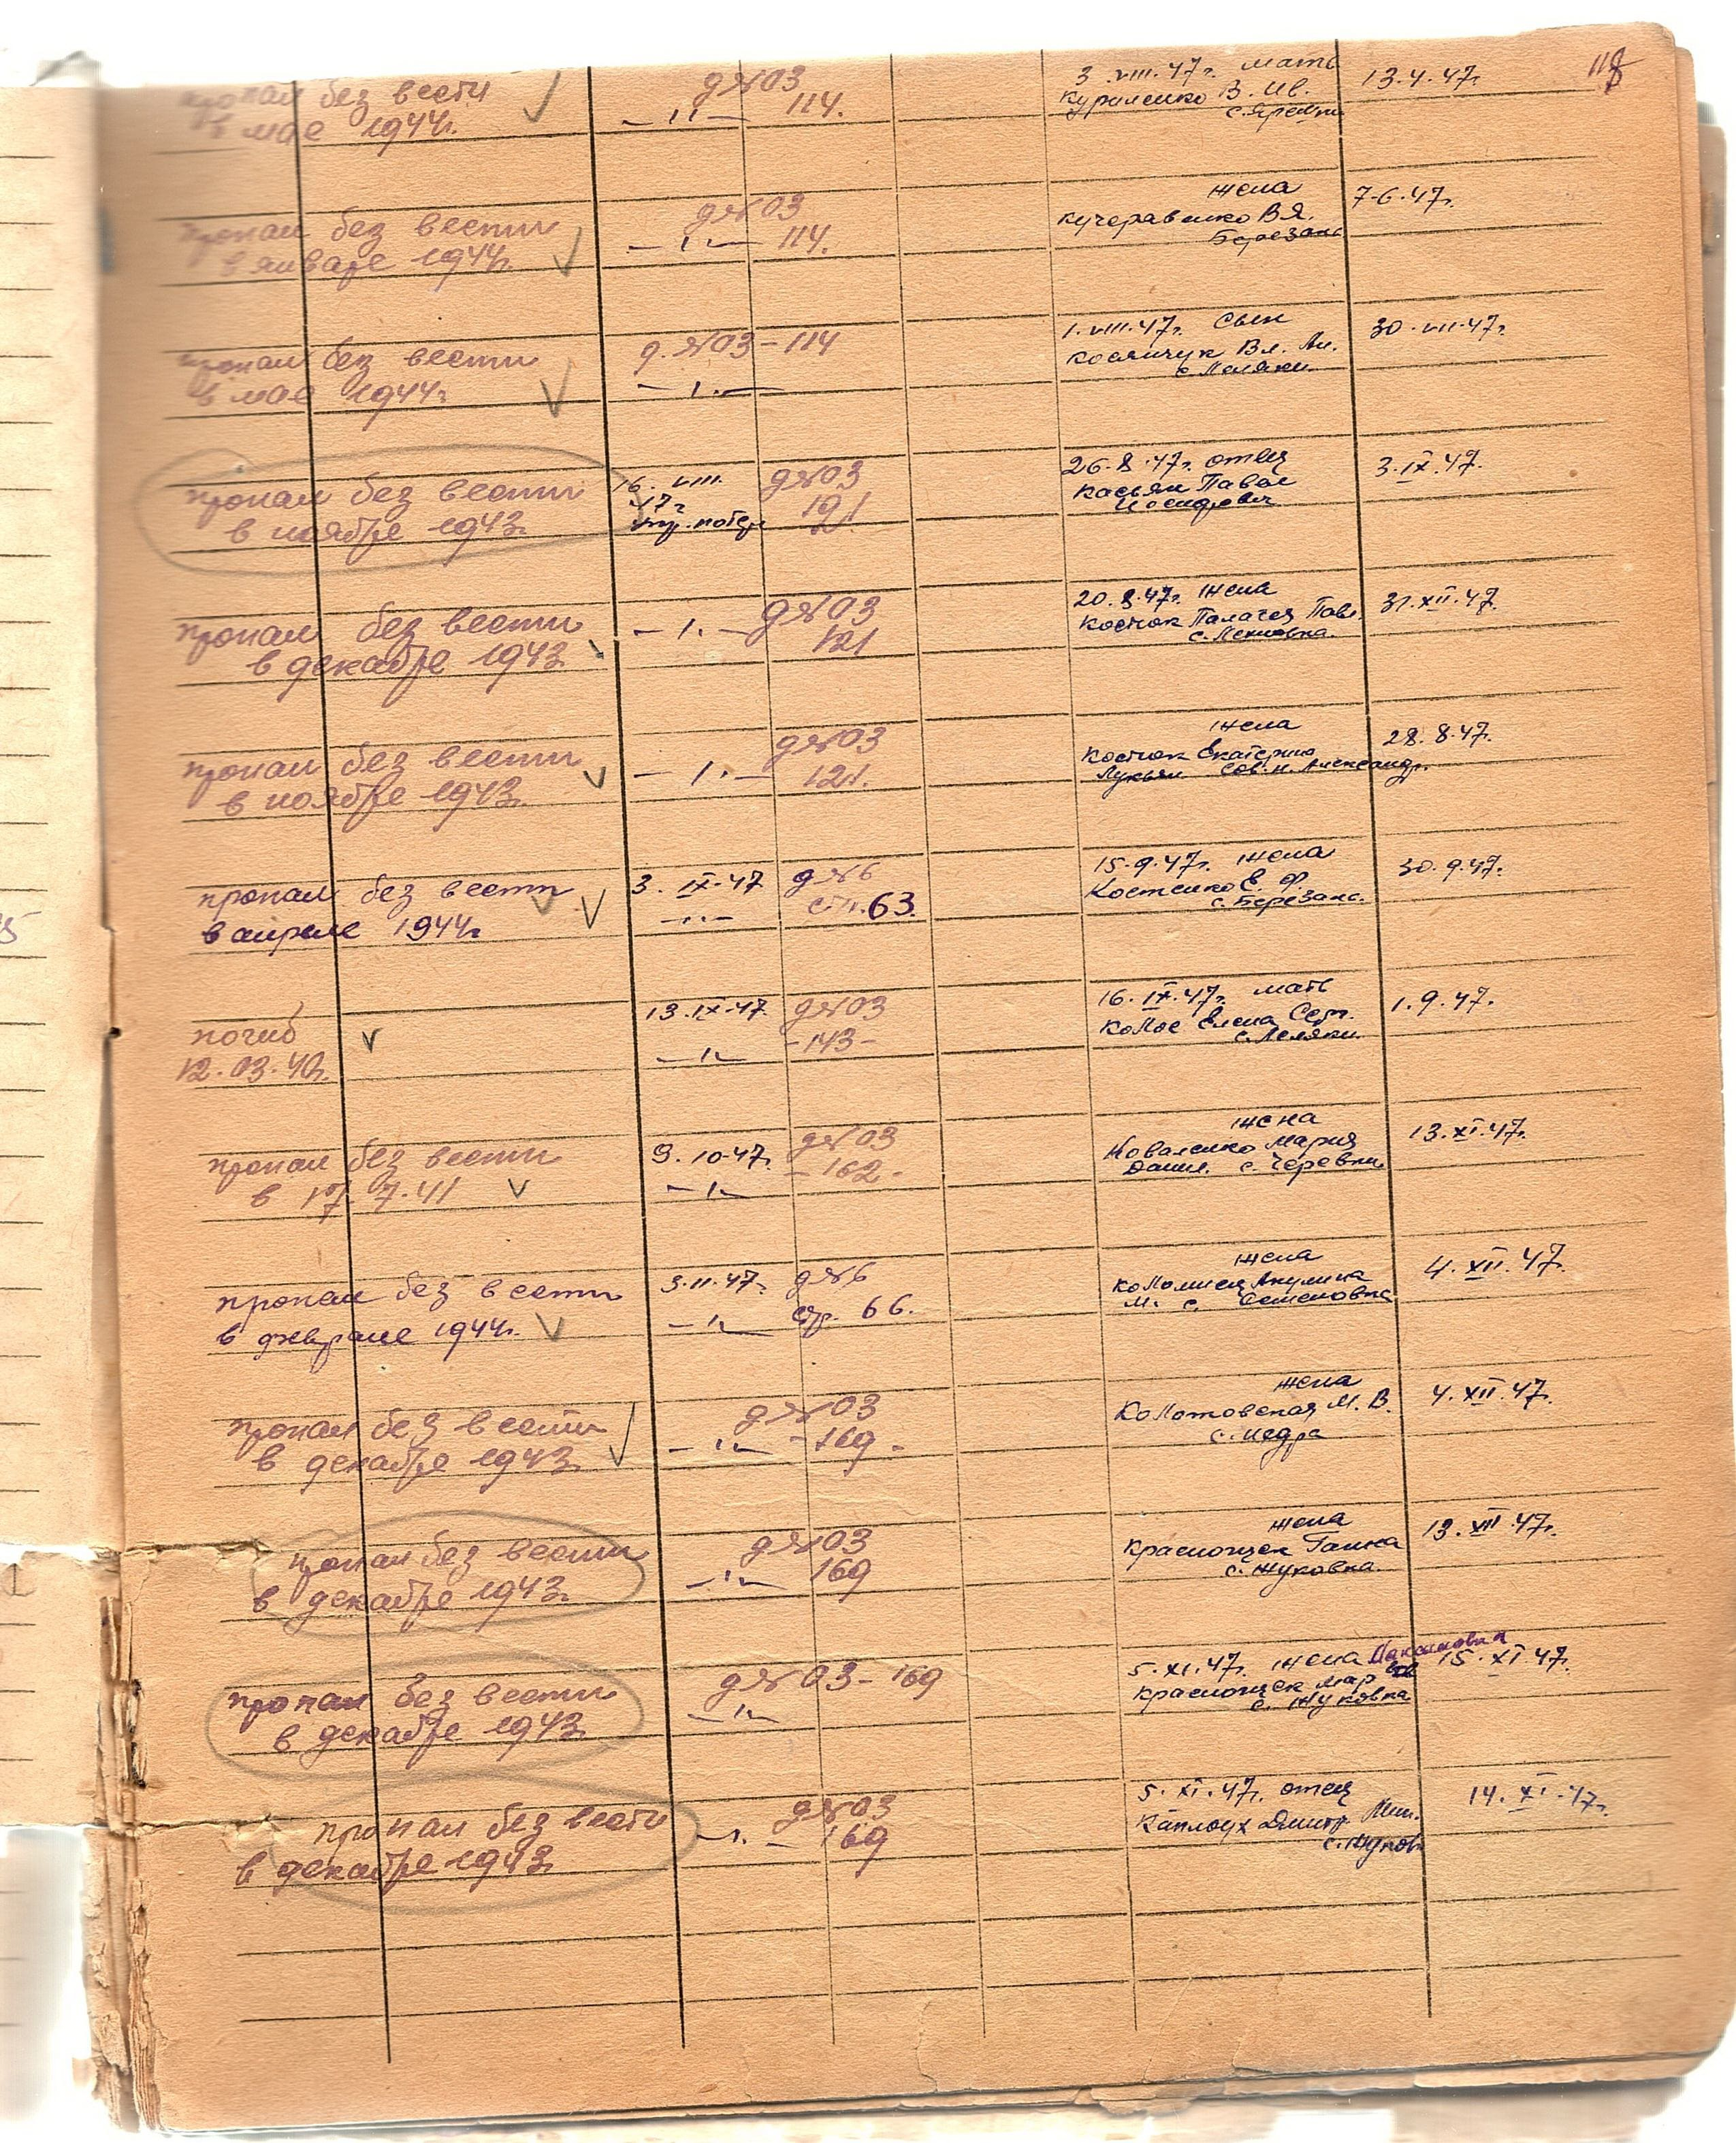 118
пропал без вести
в мае 1944г.
д№03
—"— 114.
3.VIII.47г. мать
Куриленко В. Ив.
с. Яремки
13.4.47г.
пропал без вести
в январе 1944г.
д№03
—"— 114.
жена
Кучеравенко В Я.
Березань
7-6.47г.
пропал без вести
в мае 1944г.
д.№03-114
—"—
1.VIII.47г. сын
Косянчук Вл. Ан.
с. Леляки
30.VII.47г.
пропал без вести
в ноябре 1943г.
16. VIII.
47г
упр. потерь
д№03
121
26.8.47г. отец
Касьян Павел
Иосифович
3.IX.47.
пропал без вести
в декабре 1943г.
—"— д№03
121
20.8.47г. жена
Костюк Палагея Павл.
31.XII.47г.
пропал без вести
в ноябре 1943г.
д№03
—"— 121.
жена
Костюк Екатерина
Лукьян. Сов. п. Александр.
28.8.47г.
пропал без вести
в апреле 1944г.
3. IX-47
—"—
д№6
стр. 63.
15.9.47г. жена
Костенко Е. Ф.
с. Березань.
30.9.47г.
погиб
12.03.40г.
13.IX-47.
—"—
д№03
-143-
16.IX.47г. мать
Колос Елена Серг.
с. Леляки
1.9.47.
пропал без вести
в 17.7.41
9.10-47г.
—"—
д№03
-162-
жена
Коваленко Мария
Данил. с. Черевки
13.XI.47г.
пропал без вести
в феврале 1944г.
3.11.47г.
—"—
д№6
стр. 66.
жена
Коломиец Акулина
М. с. Семеновка
4.XII.47.
пропал без вести
в декабре 1943г.
д№03
—"— -169-
жена
Коломовская М. В.
с. Недра
4.XII.47.
пропал без вести
в декабре 1943г.
д№03
—"— 169
жена
Краснощек Ганна
с. Жуковка.
13.XII.47г.
пропал без вести
в декабре 1943г.
д№03-169
—"—
5.XI.47г. жена Максимовна
Краснощек Мар
с. Жуковка
15.XI.47.
пропал без вести
в декабре 1943г.
д№03
—"— 169
5.XI.47г. отец
Каплоух Дмитр Мих.
с. Жуков.
14.XI.47г.